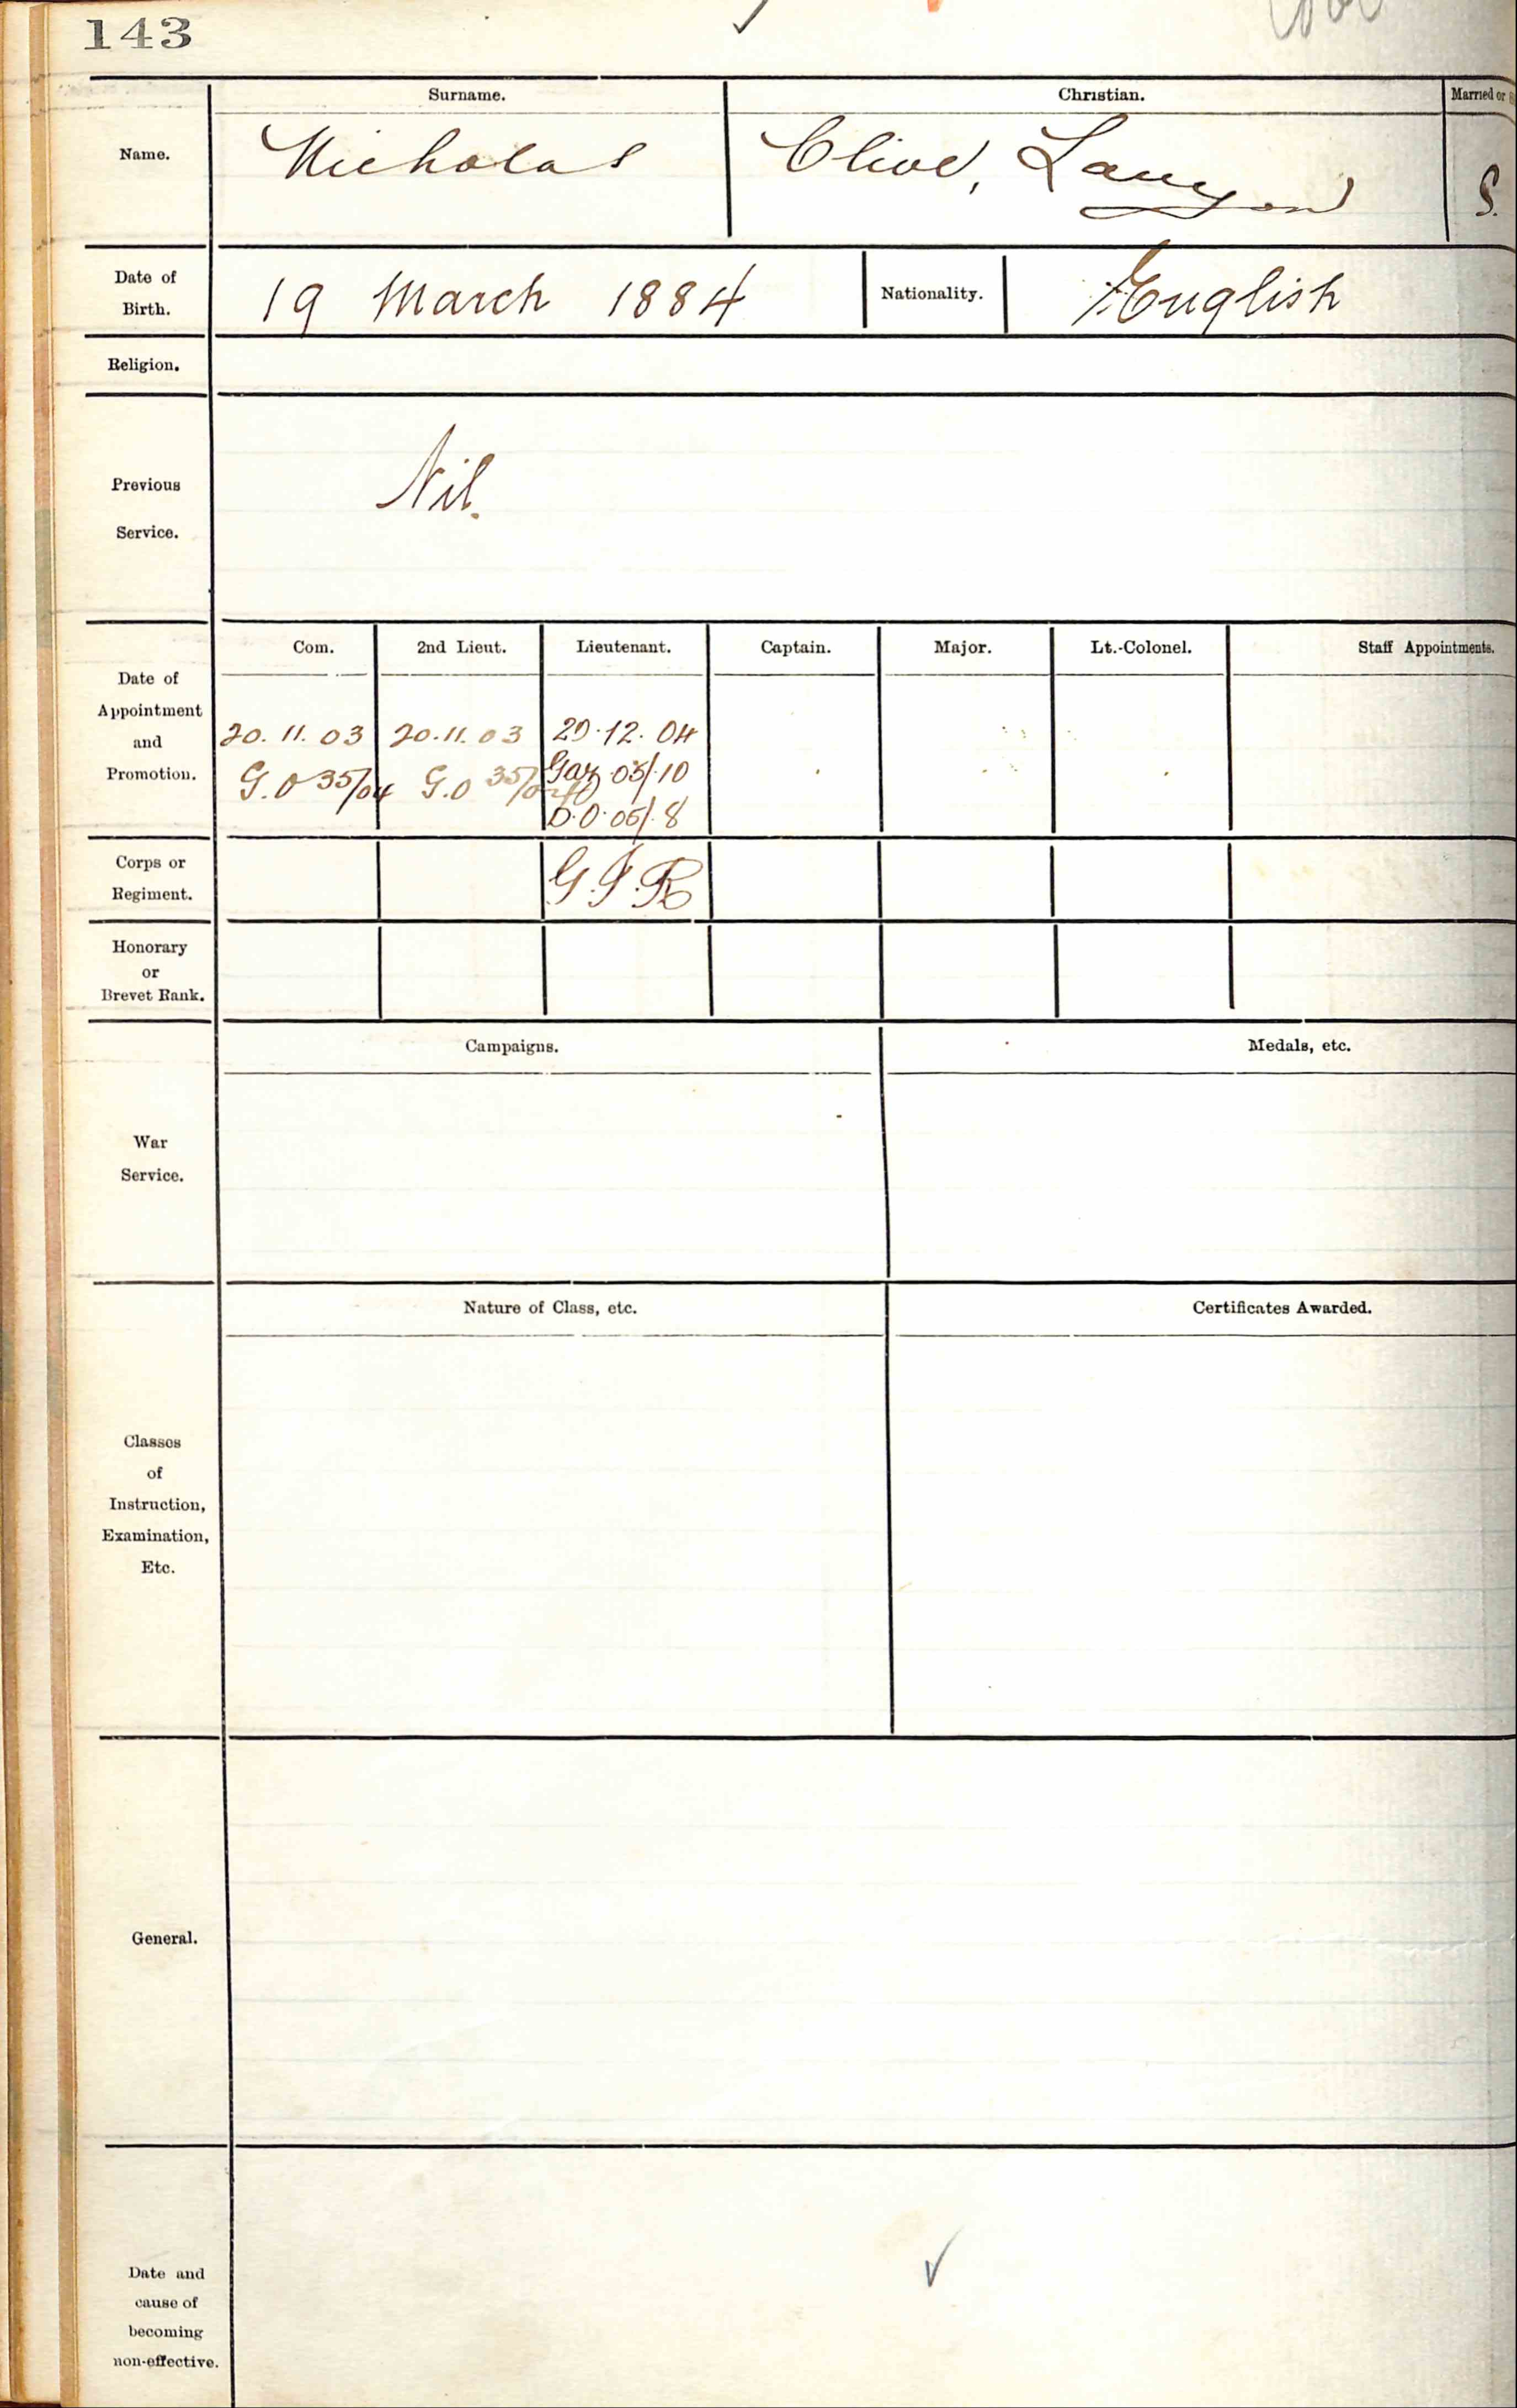 143
Surname.
Christian.
Married or
Name.
Nicholas
Clive, Lanyon
S.
Date of
Birth.
19 March 1884
Nationality.
English
Religion.
Previous
Service.
Nil.
Com.
2nd Lieut.
Lieutenant.
Captain.
Major.
Lt.-Colonel.
Staff Appointments.
Date of
Appointment
and
Promotion.
20. 11. 03
20. 11. 03
29. 12. 04
G.O 35/04
G.O 35/04
Gaz. 05/.10
D.O. 05/.8
Corps or
Regiment.
G.I.R
Honorary
or
Brevet Rank.
Campaigns.
Medals, etc.
War
Service.
Nature of Class, etc.
Certificates Awarded.
Classes
of
Instruction,
Examination,
Etc.
General.
Date and
cause of
becoming
non-effective.